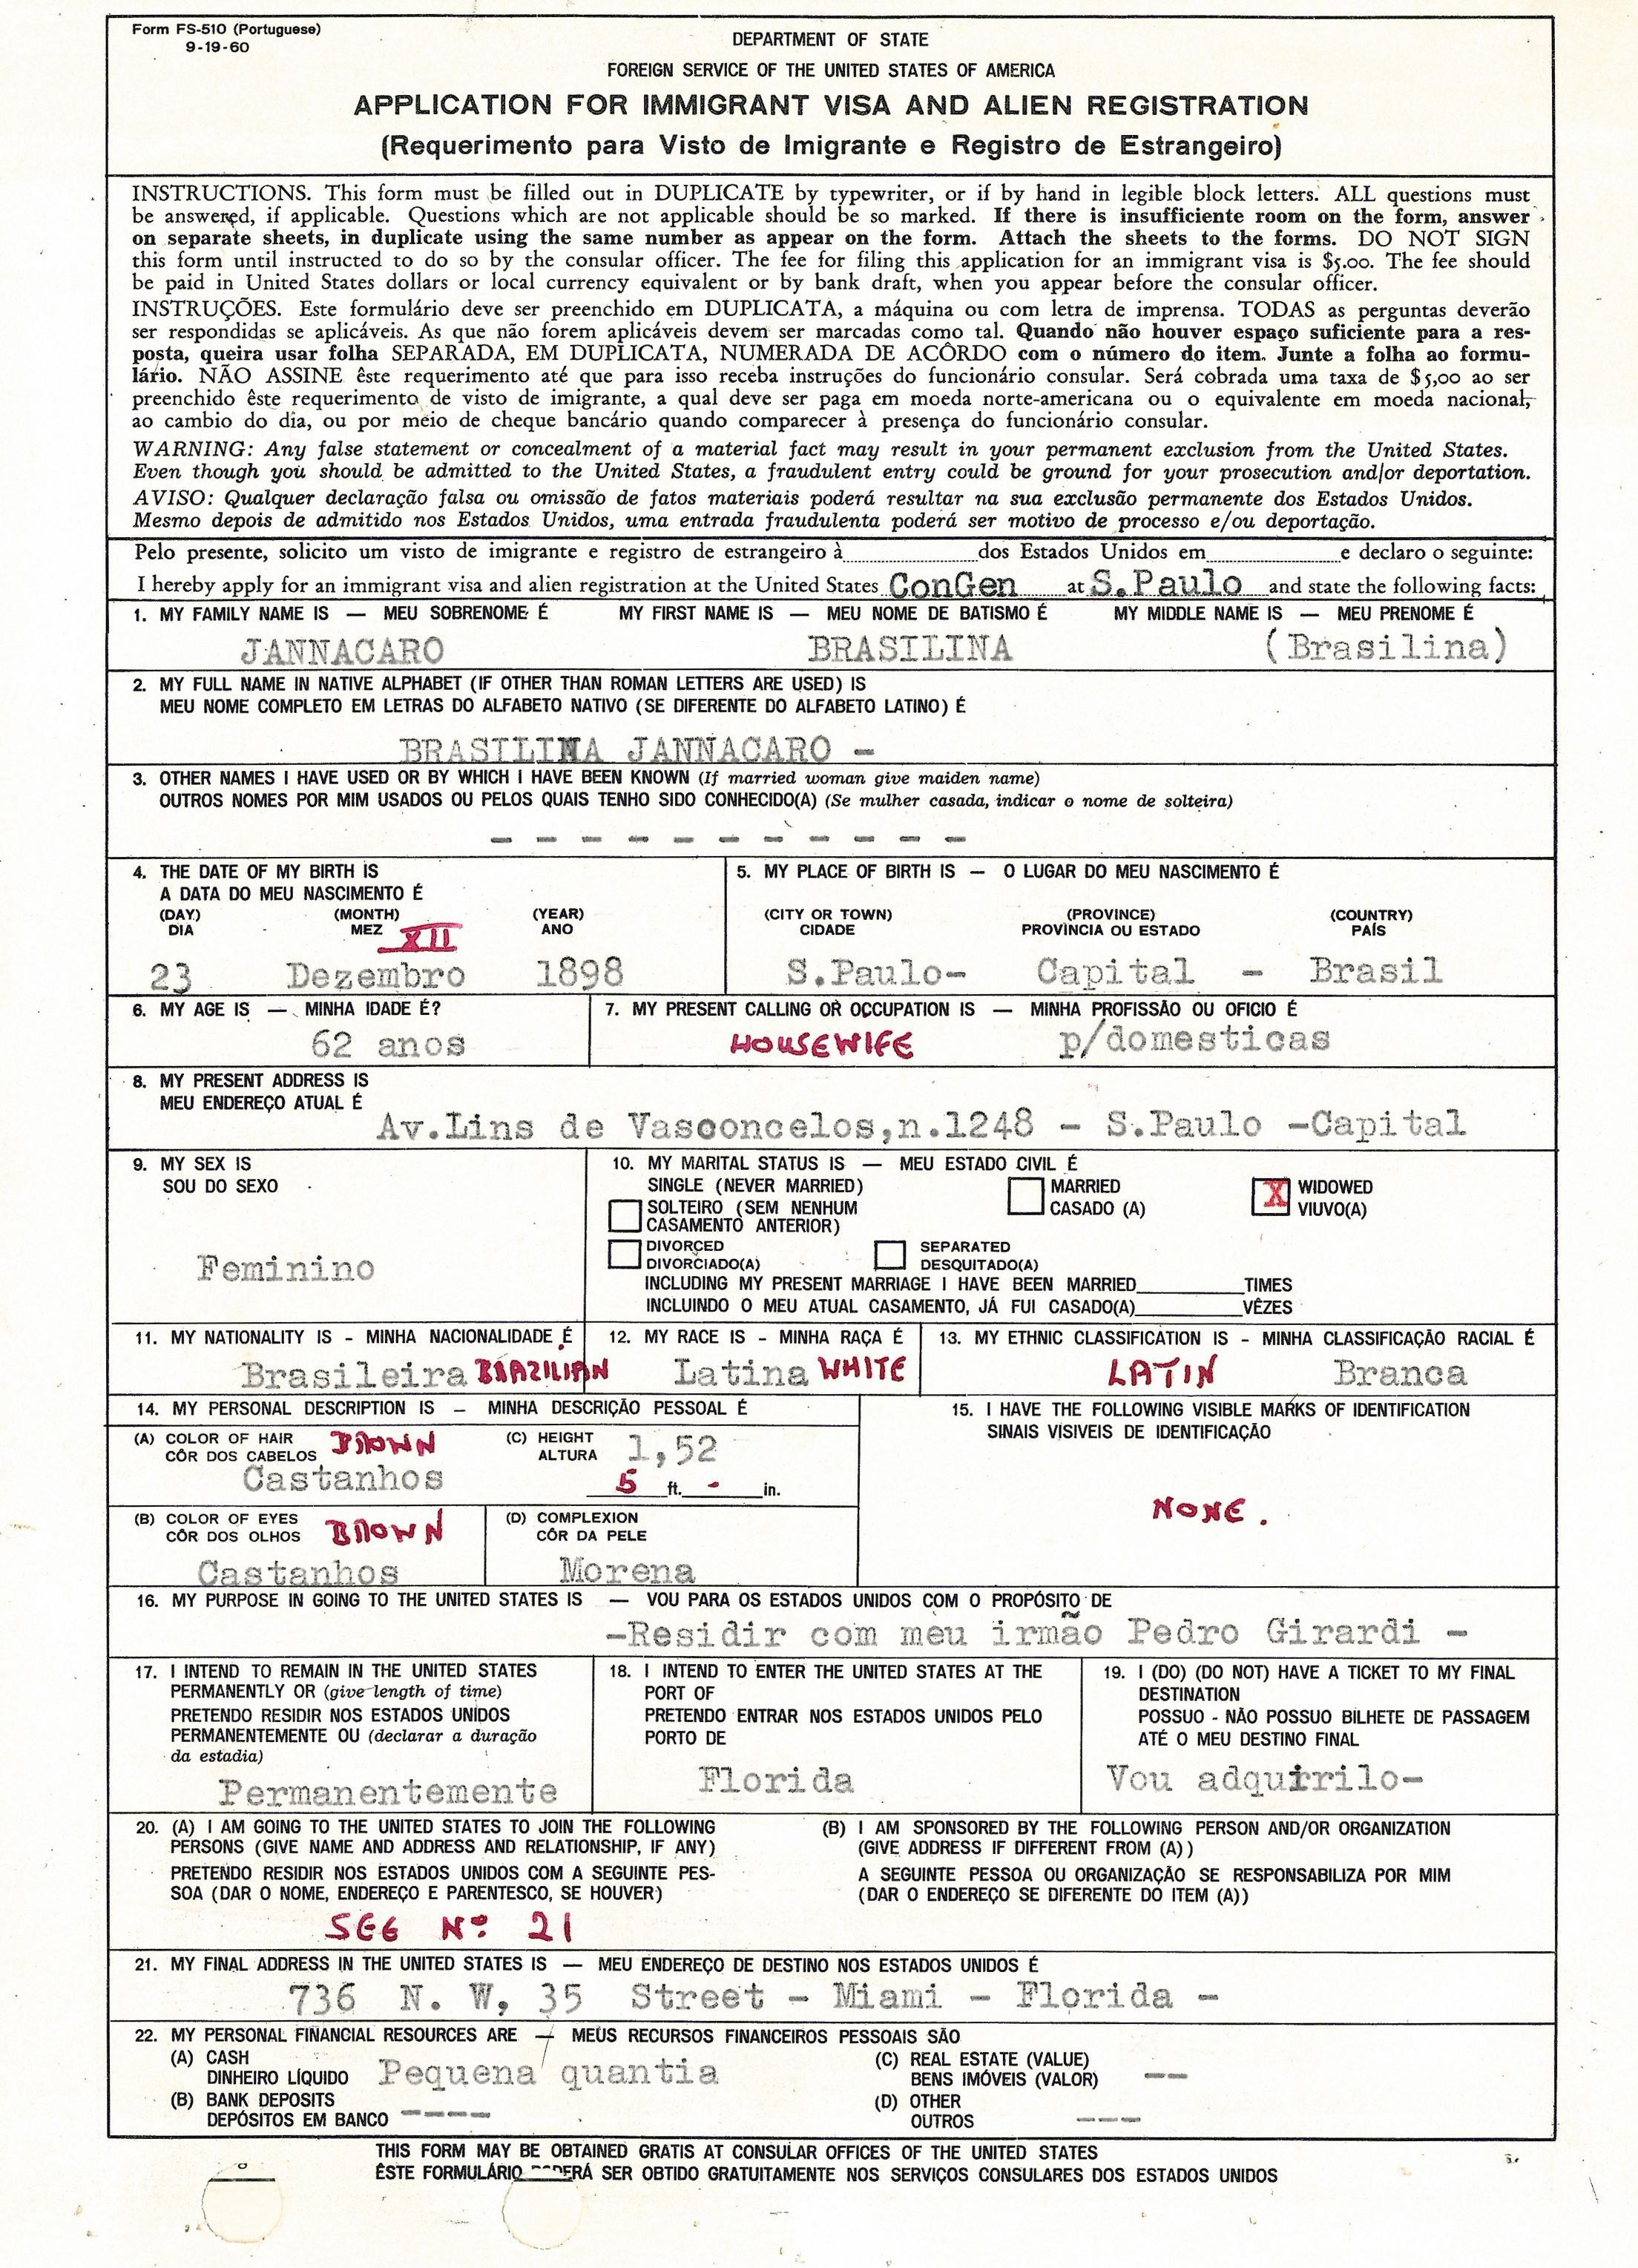 Form FS-510 (Portuguese)
9-19-60
DEPARTMENT OF STATE
FOREIGN SERVICE OF THE UNITED STATES OF AMERICA
APPLICATION FOR IMMIGRANT VISA AND ALIEN REGISTRATION
(Requerimento para Visto de Imigrante e Registro de Estrangeiro)
INSTRUCTIONS. This form must be filled out in DUPLICATE by typewriter, or if by hand in legible block letters. ALL questions must
be answered, if applicable. Questions which are not applicable should be so marked. If there is insufficiente room on the form, answer
on separate sheets, in duplicate using the same number as appear on the form. Attach the sheets to the forms. DO NOT SIGN
this form until instructed to do so by the consular officer. The fee for filing this application for an immigrant visa is $5.00. The fee should
be paid in United States dollars or local currency equivalent or by bank draft, when you appear before the consular officer.
INSTRUÇÕES. Este formulário deve ser preenchido em DUPLICATA, a máquina ou com letra de imprensa. TODAS as perguntas deverão
ser respondidas se aplicáveis. As que não forem aplicáveis devem ser marcadas como tal. Quando não houver espaço suficiente para a res-
posta, queira usar folha SEPARADA, EM DUPLICATA, NUMERADA DE ACÔRDO com o número do item. Junte a folha ao formu-
lário. NÃO ASSINE êste requerimento até que para isso receba instruções do funcionário consular. Será cobrada uma taxa de $5,00 ao ser
preenchido êste requerimento de visto de imigrante, a qual deve ser paga em moeda norte-americana ou o equivalente em moeda nacional,
ao cambio do dia, ou por meio de cheque bancário quando comparecer à presença do funcionário consular.
WARNING: Any false statement or concealment of a material fact may result in your permanent exclusion from the United States.
Even though you should be admitted to the United States, a fraudulent entry could be ground for your prosecution and/or deportation.
AVISO: Qualquer declaração falsa ou omissão de fatos materiais poderá resultar na sua exclusão permanente dos Estados Unidos.
Mesmo depois de admitido nos Estados Unidos, uma entrada fraudulenta poderá ser motivo de processo e/ou deportação.
Pelo presente, solicito um visto de imigrante e registro de estrangeiro à dos Estados Unidos em e declaro o seguinte:
I hereby apply for an immigrant visa and alien registration at the United States ConGen at S.Paulo and state the following facts:
1. MY FAMILY NAME IS — MEU SOBRENOME É MY FIRST NAME IS — MEU NOME DE BATISMO É MY MIDDLE NAME IS — MEU PRENOME É
JANNACARO BRASILINA (Brasilina)
2. MY FULL NAME IN NATIVE ALPHABET (IF OTHER THAN ROMAN LETTERS ARE USED) IS
MEU NOME COMPLETO EM LETRAS DO ALFABETO NATIVO (SE DIFERENTE DO ALFABETO LATINO) É
BRASILINA JANNACARO -
3. OTHER NAMES I HAVE USED OR BY WHICH I HAVE BEEN KNOWN (If married woman give maiden name)
OUTROS NOMES POR MIM USADOS OU PELOS QUAIS TENHO SIDO CONHECIDO(A) (Se mulher casada, indicar o nome de solteira)
- - - - - - - - - - -
4. THE DATE OF MY BIRTH IS
A DATA DO MEU NASCIMENTO É
(DAY) (MONTH) (YEAR)
DIA MEZ XII ANO
23 Dezembro 1898
5. MY PLACE OF BIRTH IS — O LUGAR DO MEU NASCIMENTO É
(CITY OR TOWN) (PROVINCE) (COUNTRY)
CIDADE PROVINCIA OU ESTADO PAÍS
S.Paulo- Capital - Brasil
6. MY AGE IS — MINHA IDADE É?
62 anos
7. MY PRESENT CALLING OR OCCUPATION IS — MINHA PROFISSÃO OU OFICIO É
HOUSEWIFE p/domesticas
8. MY PRESENT ADDRESS IS
MEU ENDEREÇO ATUAL É
Av.Lins de Vasconcelos,n.1248 - S.Paulo -Capital
9. MY SEX IS
SOU DO SEXO
Feminino
10. MY MARITAL STATUS IS — MEU ESTADO CIVIL É
SINGLE (NEVER MARRIED) MARRIED X WIDOWED
SOLTEIRO (SEM NENHUM CASADO (A) VIUVO(A)
CASAMENTO ANTERIOR)
DIVORCED SEPARATED
DIVORCIADO(A) DESQUITADO(A)
INCLUDING MY PRESENT MARRIAGE I HAVE BEEN MARRIED TIMES
INCLUINDO O MEU ATUAL CASAMENTO, JÁ FUI CASADO(A) VÊZES
11. MY NATIONALITY IS - MINHA NACIONALIDADE É
Brasileira BRAZILIAN
12. MY RACE IS - MINHA RAÇA É
Latina WHITE
13. MY ETHNIC CLASSIFICATION IS - MINHA CLASSIFICAÇÃO RACIAL É
LATIN Branca
14. MY PERSONAL DESCRIPTION IS — MINHA DESCRIÇÃO PESSOAL É
(A) COLOR OF HAIR BROWN
CÔR DOS CABELOS
Castanhos
(C) HEIGHT 1,52
ALTURA
5 ft. - in.
(B) COLOR OF EYES BROWN
CÔR DOS OLHOS
Castanhos
(D) COMPLEXION
CÔR DA PELE
Morena
15. I HAVE THE FOLLOWING VISIBLE MARKS OF IDENTIFICATION
SINAIS VISIVEIS DE IDENTIFICAÇÃO
NONE.
16. MY PURPOSE IN GOING TO THE UNITED STATES IS — VOU PARA OS ESTADOS UNIDOS COM O PROPÓSITO DE
-Residir com meu irmão Pedro Girardi -
17. I INTEND TO REMAIN IN THE UNITED STATES
PERMANENTLY OR (give length of time)
PRETENDO RESIDIR NOS ESTADOS UNIDOS
PERMANENTEMENTE OU (declarar a duração
da estadia)
Permanentemente
18. I INTEND TO ENTER THE UNITED STATES AT THE
PORT OF
PRETENDO ENTRAR NOS ESTADOS UNIDOS PELO
PORTO DE
Florida
19. I (DO) (DO NOT) HAVE A TICKET TO MY FINAL
DESTINATION
POSSUO - NÃO POSSUO BILHETE DE PASSAGEM
ATÉ O MEU DESTINO FINAL
Vou adquirilo-
20. (A) I AM GOING TO THE UNITED STATES TO JOIN THE FOLLOWING
PERSONS (GIVE NAME AND ADDRESS AND RELATIONSHIP, IF ANY)
PRETENDO RESIDIR NOS ESTADOS UNIDOS COM A SEGUINTE PES-
SOA (DAR O NOME, ENDEREÇO E PARENTESCO, SE HOUVER)
SEE Nº 21
(B) I AM SPONSORED BY THE FOLLOWING PERSON AND/OR ORGANIZATION
(GIVE ADDRESS IF DIFFERENT FROM (A))
A SEGUINTE PESSOA OU ORGANIZAÇÃO SE RESPONSABILIZA POR MIM
(DAR O ENDEREÇO SE DIFERENTE DO ITEM (A))
21. MY FINAL ADDRESS IN THE UNITED STATES IS — MEU ENDEREÇO DE DESTINO NOS ESTADOS UNIDOS É
736 N. W, 35 Street - Miami - Florida -
22. MY PERSONAL FINANCIAL RESOURCES ARE — MEUS RECURSOS FINANCEIROS PESSOAIS SÃO
(A) CASH
DINHEIRO LÍQUIDO Pequena quantia
(B) BANK DEPOSITS
DEPÓSITOS EM BANCO ----
(C) REAL ESTATE (VALUE)
BENS IMÓVEIS (VALOR) --
(D) OTHER
OUTROS ---
THIS FORM MAY BE OBTAINED GRATIS AT CONSULAR OFFICES OF THE UNITED STATES
ÊSTE FORMULÁRIO PODERÁ SER OBTIDO GRATUITAMENTE NOS SERVIÇOS CONSULARES DOS ESTADOS UNIDOS